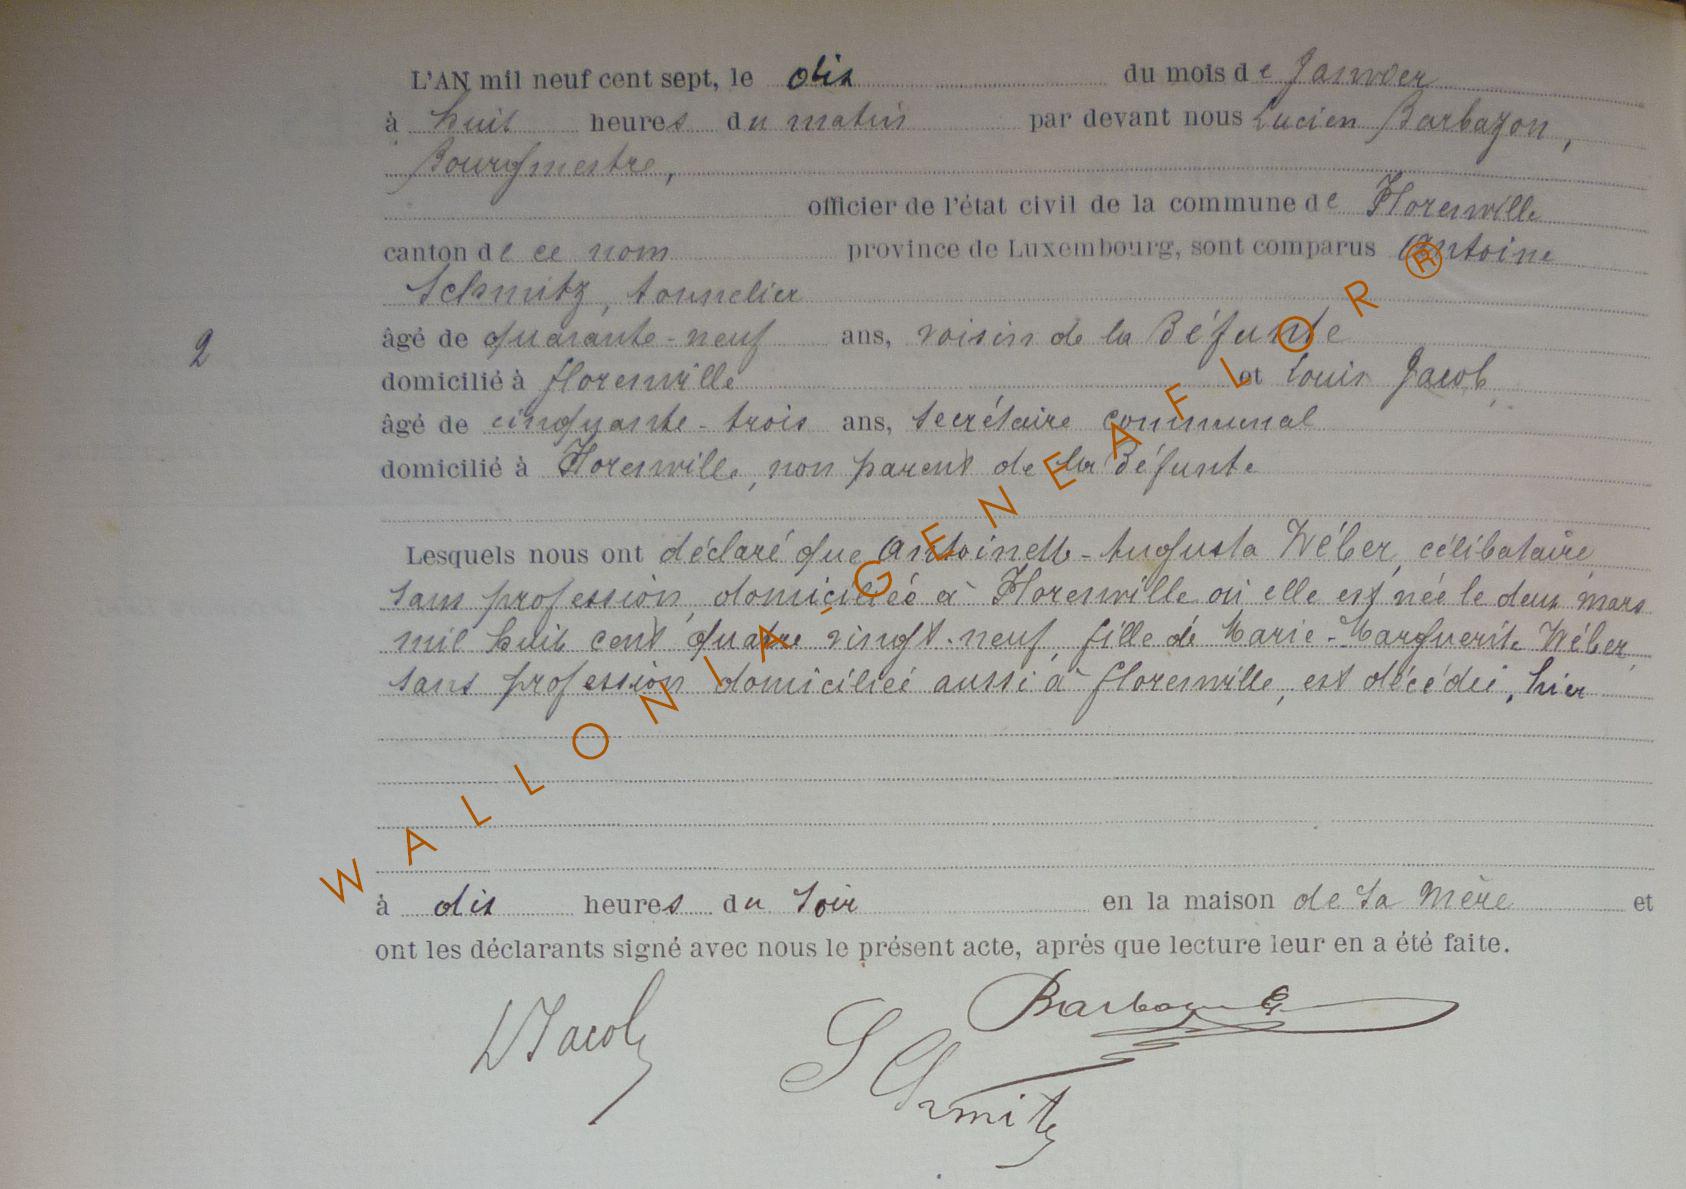 L'AN mil neuf cent sept, le dix du mois de Janvier
à huit heures du matin par devant nous Lucien Barbazon,
Bourgmestre,
officier de l'état civil de la commune de Florenville
canton de ce nom province de Luxembourg, sont comparus Antoine
Schmitz, tonnelier
âgé de quarante-neuf ans, voisin de la Défunte
2
domicilié à florenville et Louis Jacob,
âgé de cinquante-trois ans, secrétaire communal
domicilié à Florenville, non parent de la Défunte
Lesquels nous ont déclaré que Antoinette-Augusta Wéber, célibataire,
sans profession, domiciliée à Florenville où elle est née le deux mars
mil huit cent quatre vingt-neuf, fille de Marie-Marguerite Wéber,
sans profession domiciliée aussi à florenville, est décédée, hier
à dix heures du soir en la maison de sa Mère et
ont les déclarants signé avec nous le présent acte, aprés que lecture leur en a été faite.
LJacob
Schmitz
Barbazon
WALLONIA-GENEAFLOR®